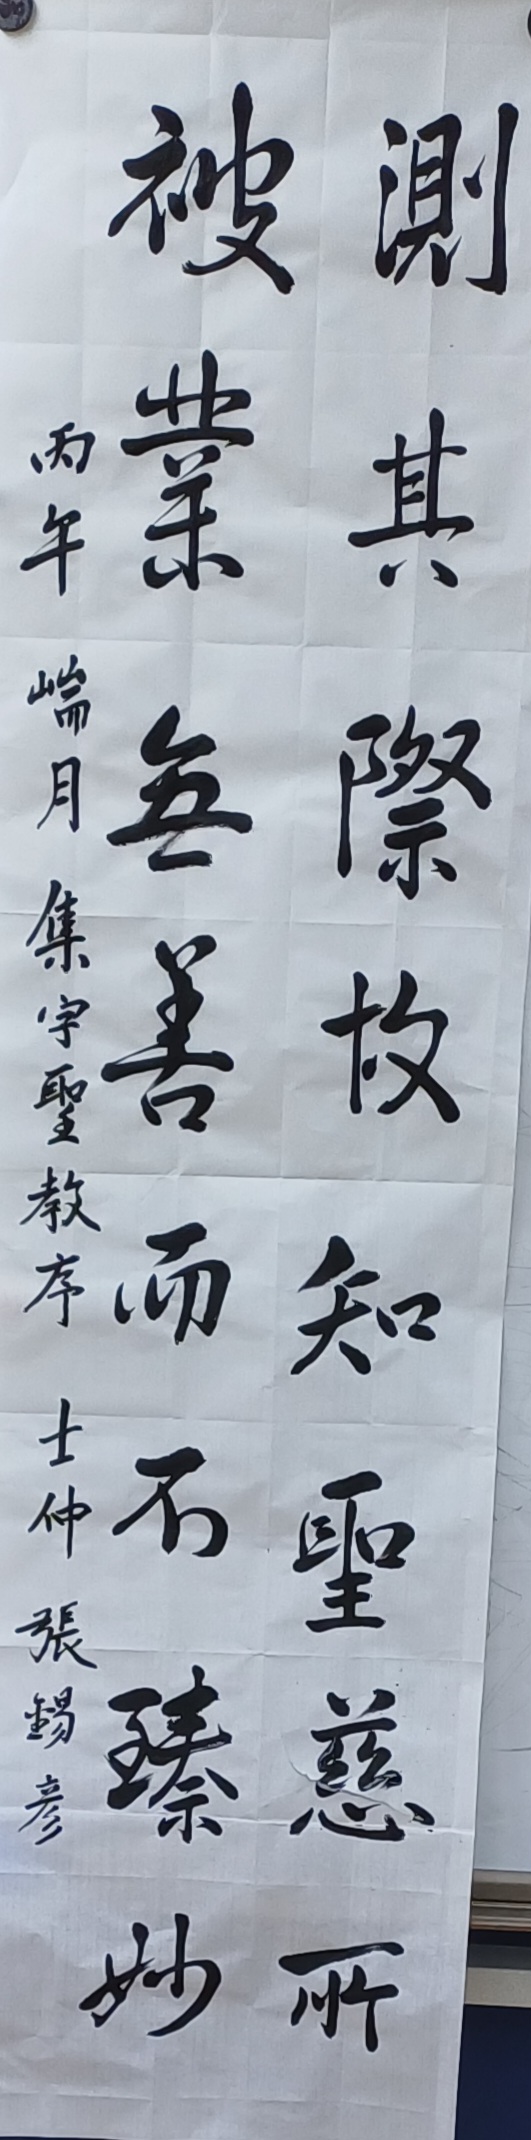 測其際故知聖慈所
被業無善而不臻妙
丙午 耑月 集字聖教序 士仲 張錫彥